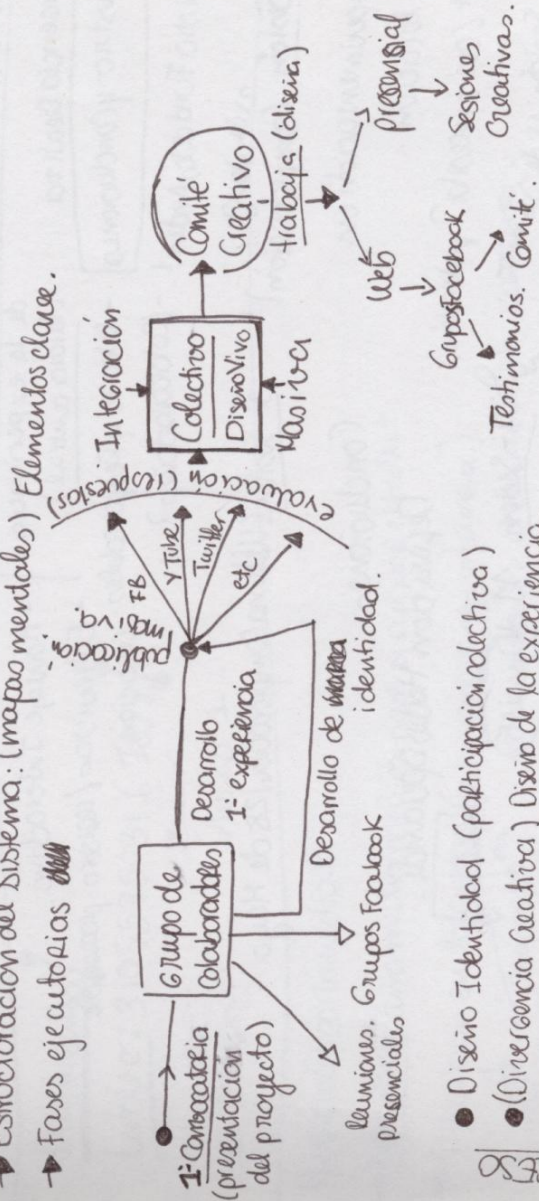 → Estructuración del Sistema: (mapas mentales) Elementos clave.
→ Fases ejecutorias
1ª Convocatoria
(presentación
del proyecto)
Grupo de
Colaboradores
Reuniones.
presenciales
Grupos Facebook
Desarrollo
1ª experiencia
Desarrollo de
identidad.
publicación
masiva.
FB
YTube
Twitter
etc
evaluación (respuestas)
Integración
Colectivo
Diseño Vivo
Masiva
Comité
Creativo
trabaja (diseña)
Web
Grupos Facebook
Testimonios. Comité.
presensial
Sesiones
Creativas.
● Diseño Identidad (participación colectiva)
● (Divergencia Creativa) Diseño de la experiencia